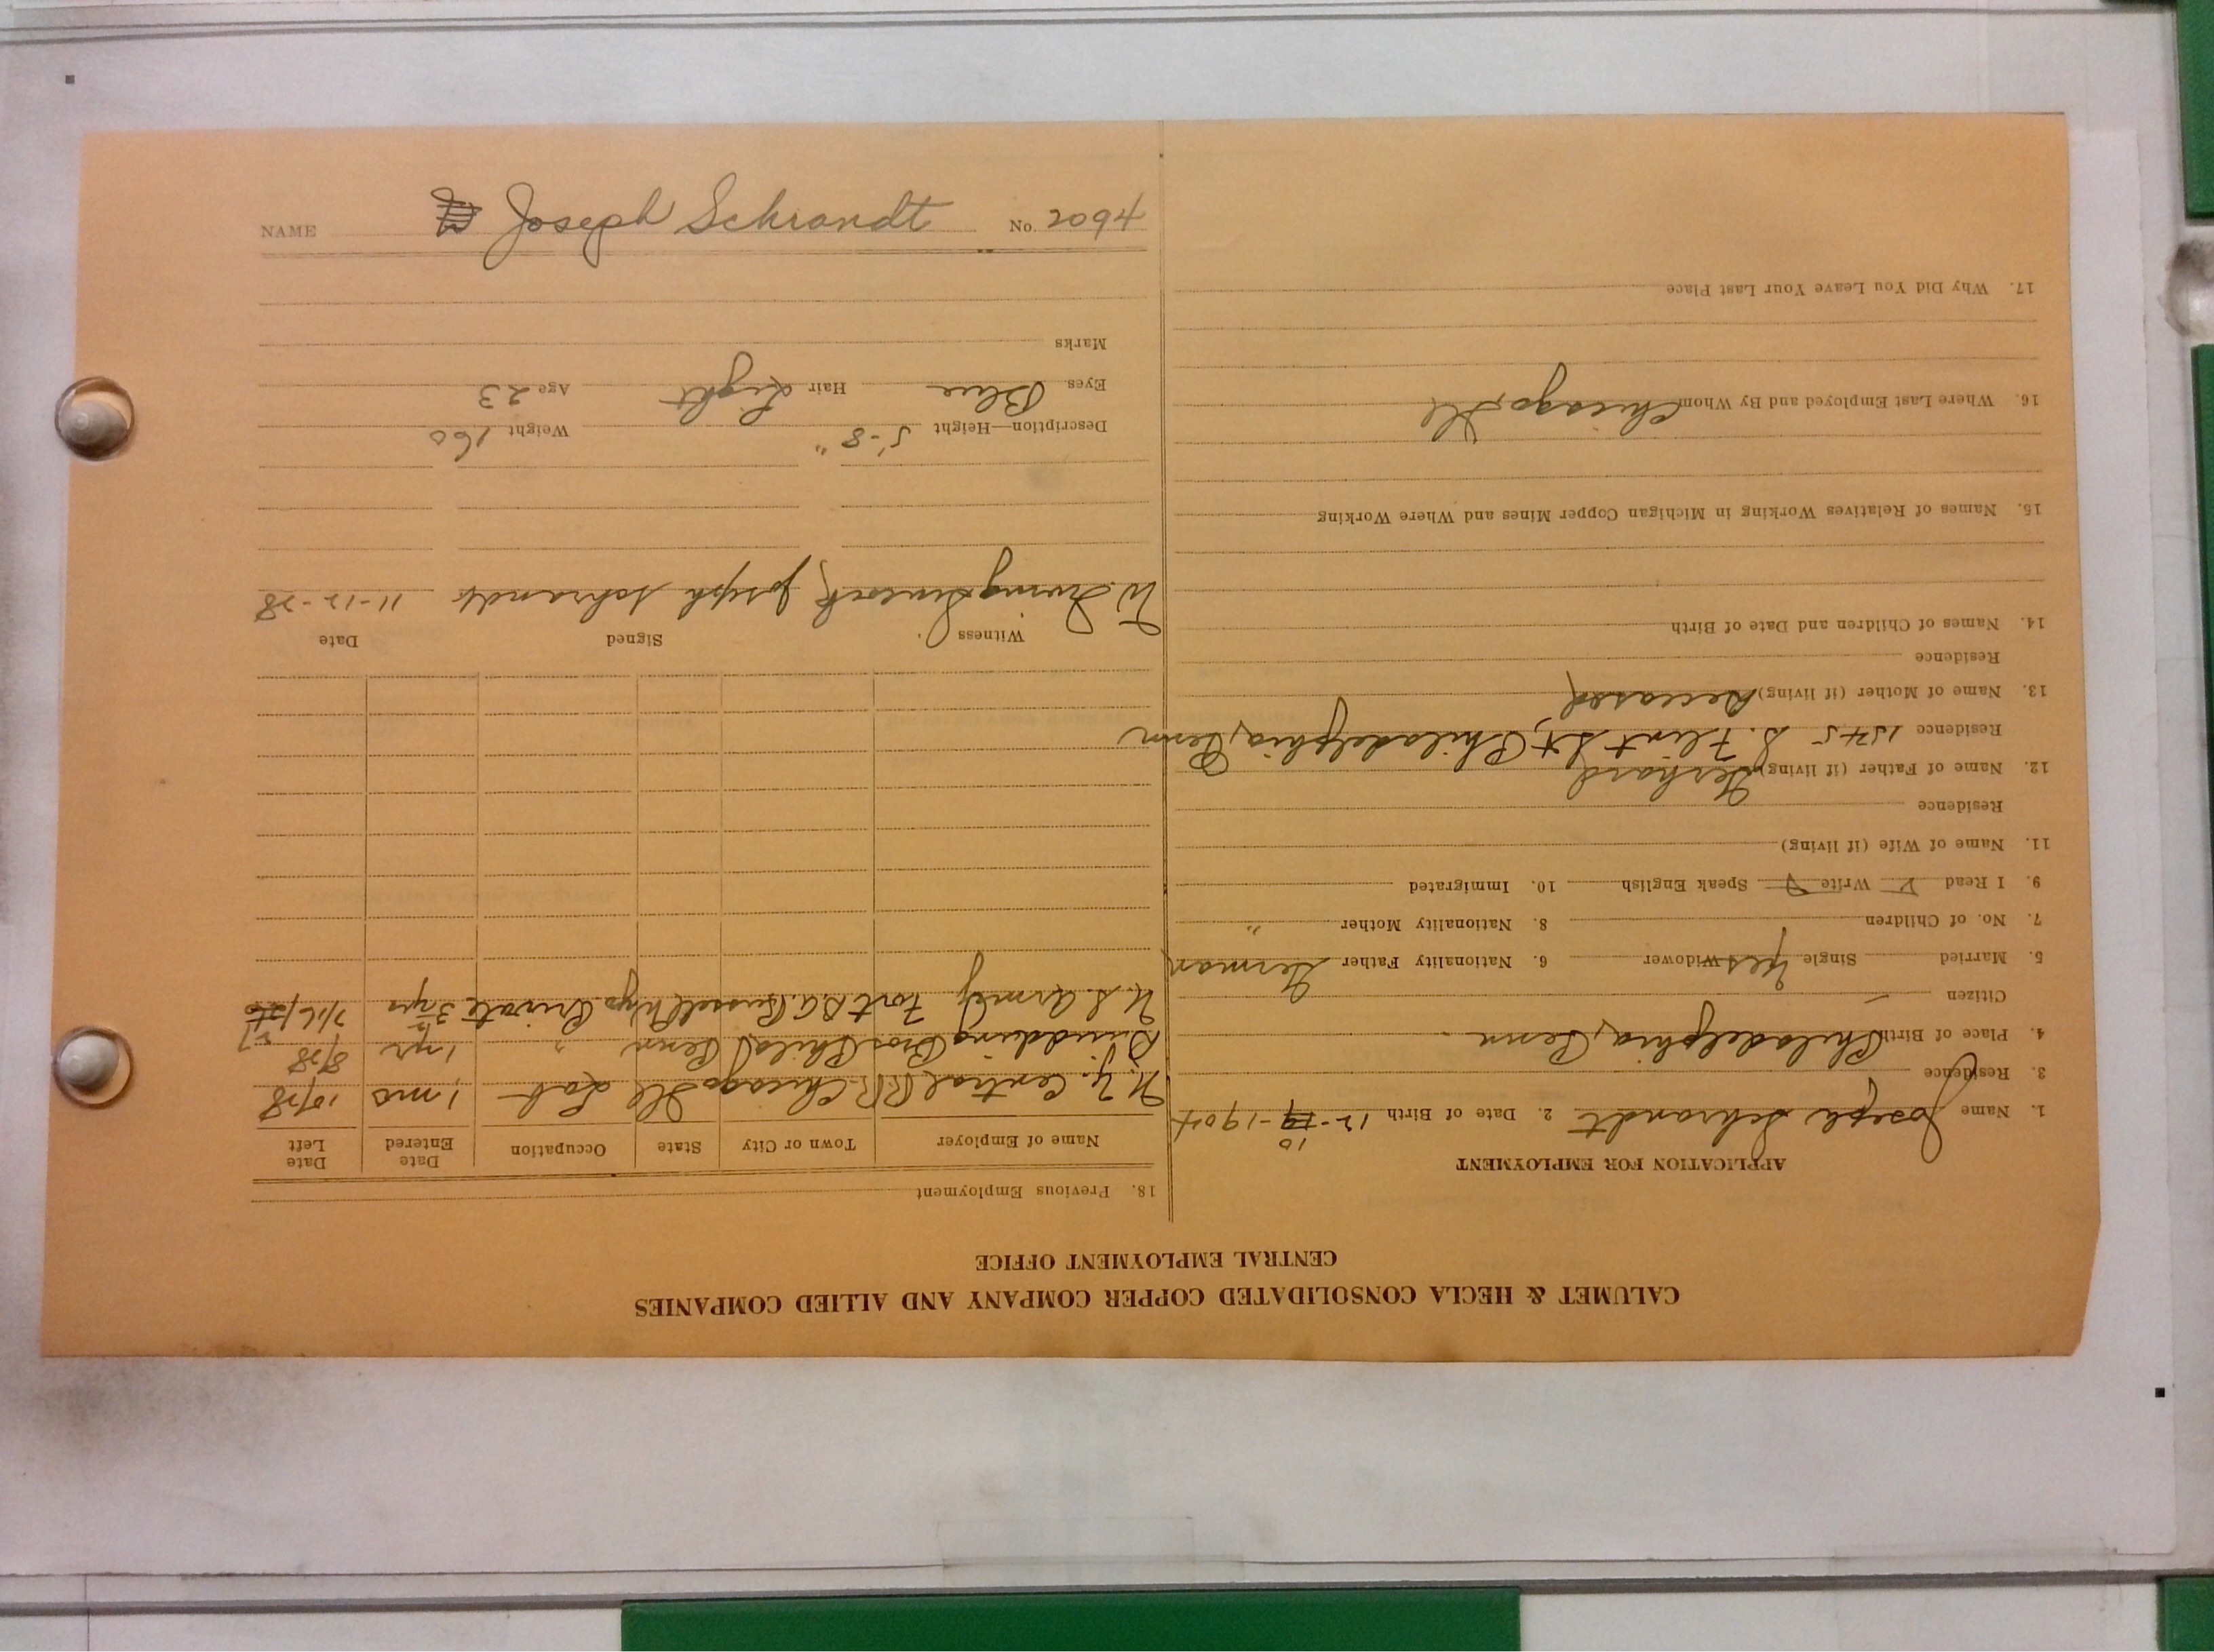 CALUMET & HECLA CONSOLIDATED COPPER COMPANY AND ALLIED COMPANIES
CENTRAL EMPLOYMENT OFFICE
APPLICATION FOR EMPLOYMENT
1. Name Joseph Schrandt 2. Date of Birth 12-10-1904
3. Residence
4. Place of Birth Philadelphia, Penn
Citizen
5. Married Single Yes Widower 6. Nationality Father German
7. No. of Children 8. Nationality Mother "
9. I Read Write Speak English 10. Immigrated
11. Name of Wife (if living)
Residence
12. Name of Father (if living) Gerhard
Residence 1545 S. Flint St, Philadelphia, Penn
13. Name of Mother (if living) Deceased
Residence
14. Names of Children and Date of Birth
15. Names of Relatives Working in Michigan Copper Mines and Where Working
16. Where Last Employed and By Whom Chicago, Ill
17. Why Did You Leave Your Last Place
18. Previous Employment
Name of Employer Town or City State Occupation Date Entered Date Left
N.Y. Central RR. Chicago Ill Lab 1 mo 10/28
Bros Phila Penn " 1 yr 8/28
U.S. Army Fort D.A. Russel Wyo. Private 3 yrs 7/16/27
Witness Signed Date
W. Irving Joseph Schrandt 11-12-28
Description—Height 5'-8" Weight 160
Eyes Blue Hair Light Age 23
Marks
NAME Joseph Schrandt No. 2094